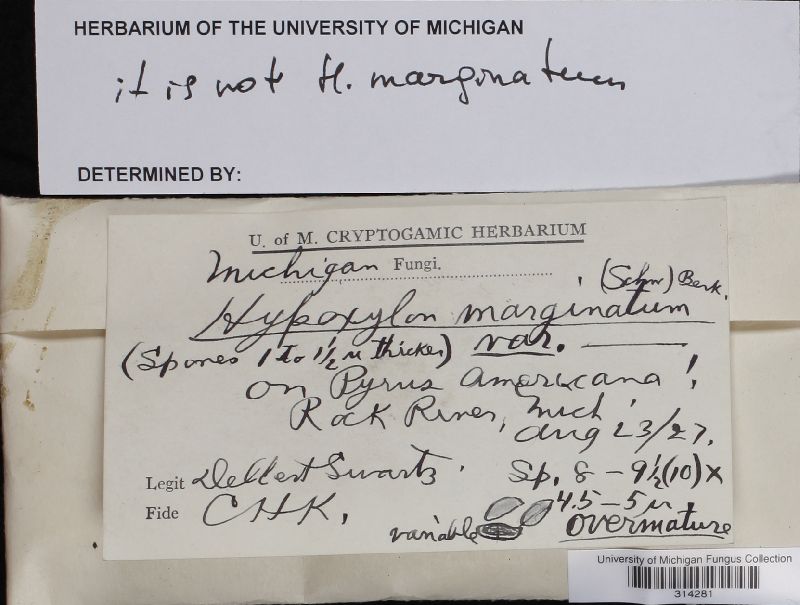 HERBARIUM OF THE UNIVERSITY OF MICHIGAN
it is not H. marginatum
DETERMINED BY:
U. of M. CRYPTOGAMIC HERBARIUM
Michigan Fungi.
(Schw) Berk.
Hypoxylon marginatum
(Spores 1 to 1½ µ thicker) var. ———
on Pyrus Americana !
Rock River, Mich.
Aug 23/27.
Legit Delbert Swartz.
Sp. 8 – 9½(10) x
4.5 – 5 µ.
Fide CHK.
variable
overmature
University of Michigan Fungus Collection
314281